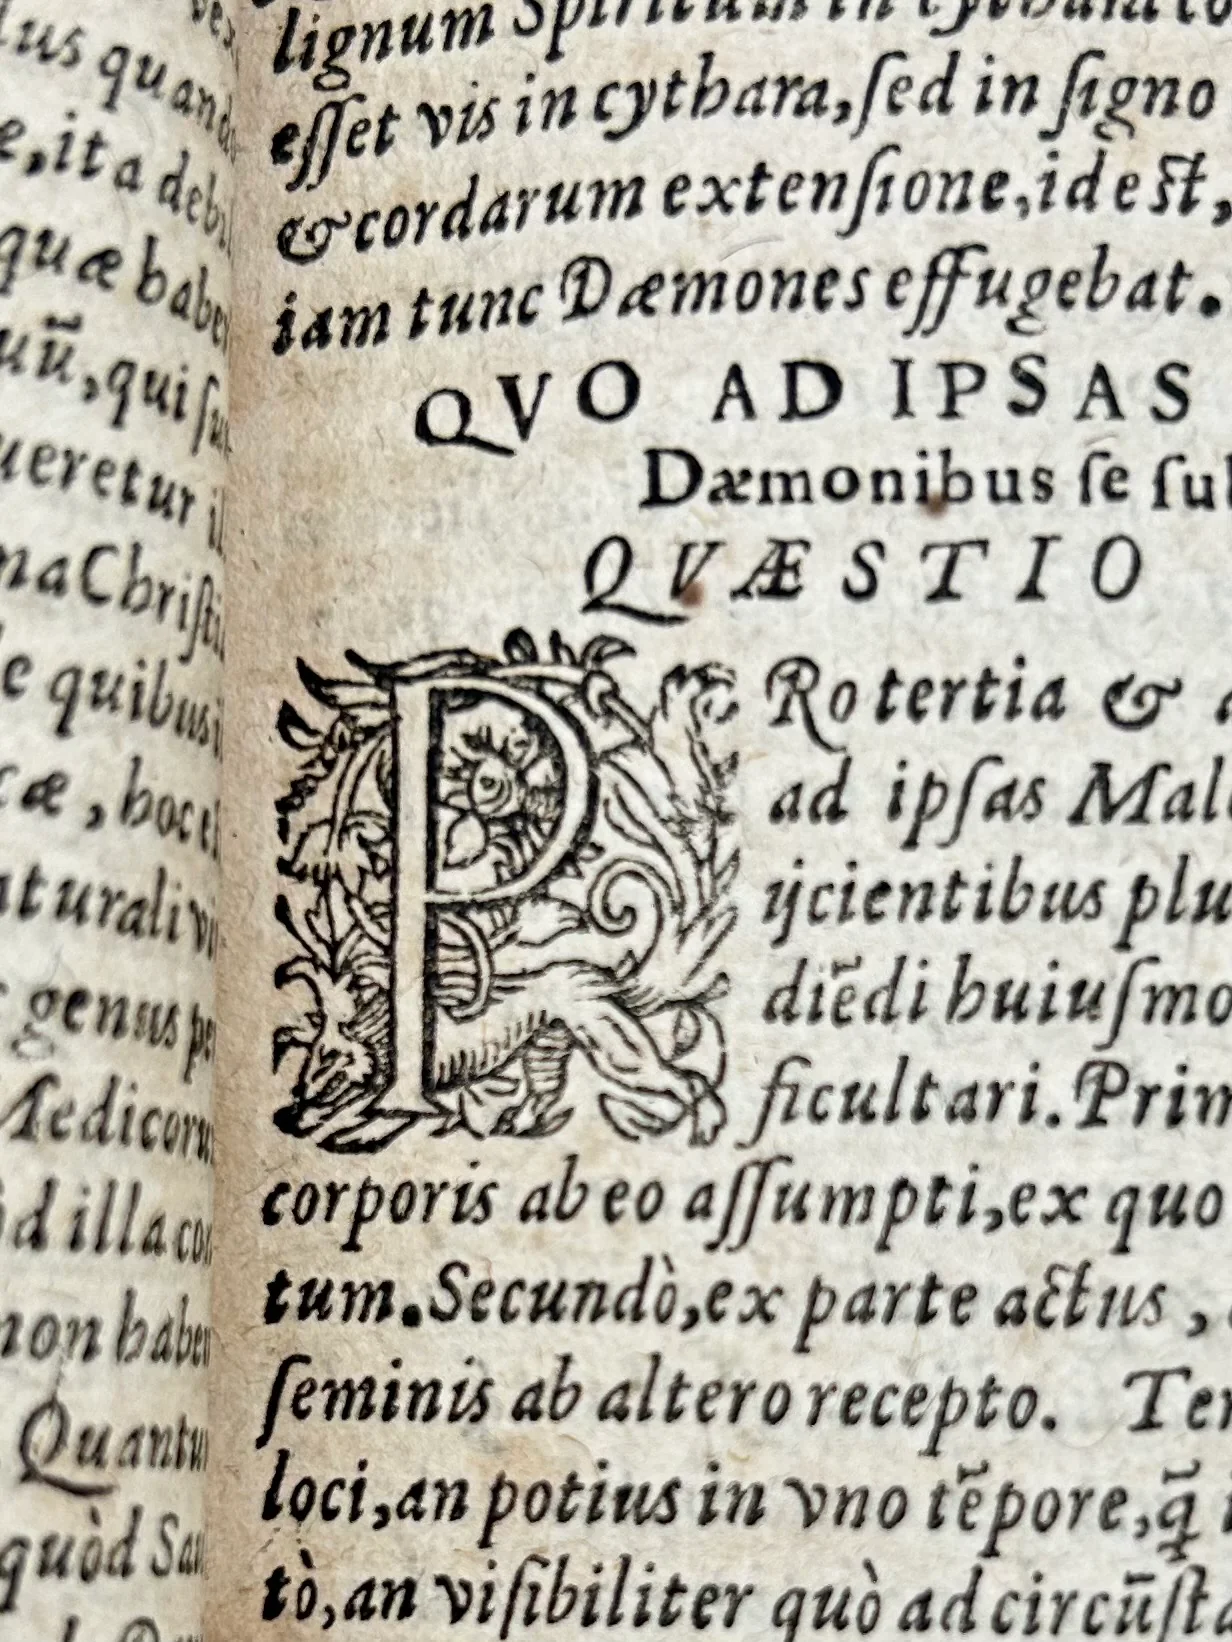 lus quan
e, ita deb
quæ habe
uũ, qui ſu
ueretur
na Chriſti
e quibus
cæ, hoc
aturali
genus
Medicoru
d illa co
non haber
Quantu
quòd Sa
lignum Spiritum in cythara
eſſet vis in cythara, ſed in ſigno
& cordarum extenſione, id eſt,
iam tunc Dæmones effugebat.
QVO AD IPSAS
Dæmonibus ſe ſu
QVÆSTIO
PRo tertia &
ad ipſas Mal
ijcientibus plu
diẽdi huiuſmo
ficultari. Prim
corporis ab eo aſſumpti, ex quo
tum. Secundò, ex parte actus,
ſeminis ab altero recepto. Ter
loci, an potius in vno tẽpore, q̃
tò, an viſibiliter quò ad circũſta